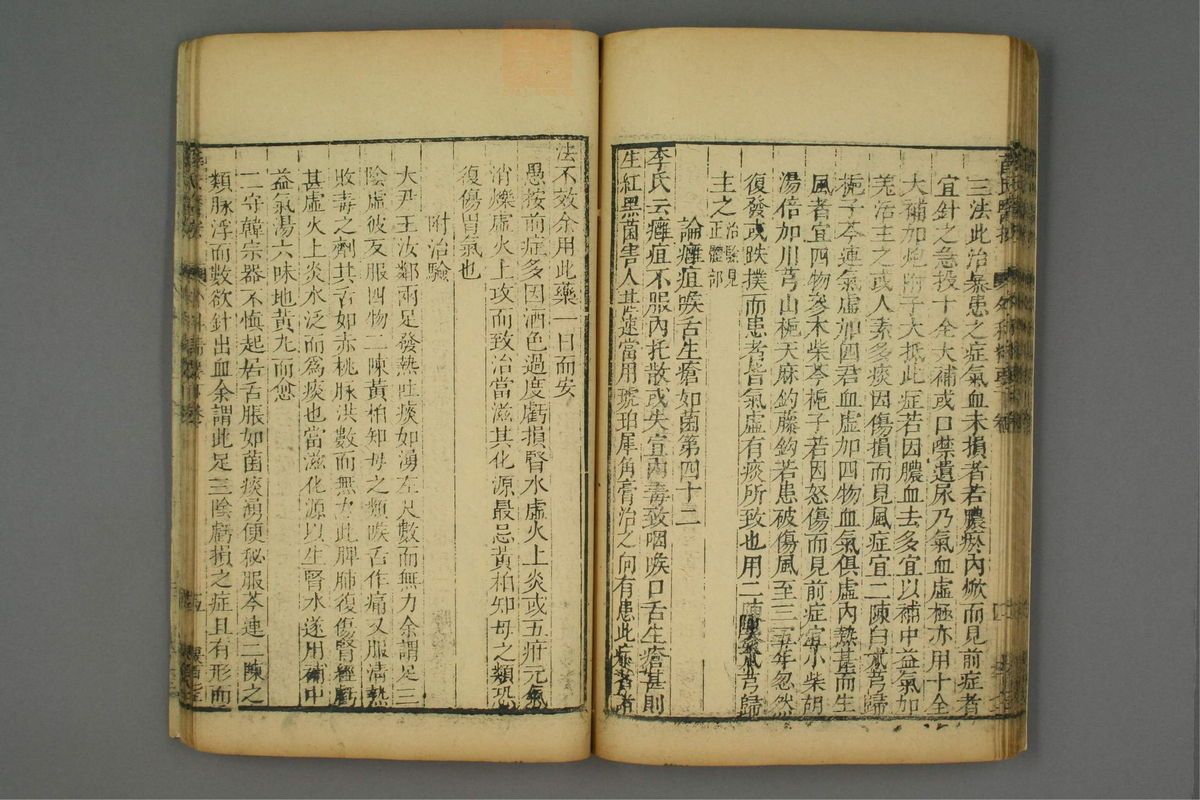 三法此治暴患之症氣血未損者若膿瘀內焮而見前症者
宜針之急投十全大補或口噤遺尿乃氣血虛極亦用十全
大補加炮附子大抵此症若因膿血去多宜以補中益氣加
羌活主之或人素多痰因傷損而見風症宜二陳白朮芎歸
梔子芩連氣虛加四君血虛加四物血氣俱虛內熱甚而生
風者宜四物參朮柴芩梔子若因怒傷而見前症宜小柴胡
湯倍加川芎山梔天麻鈎藤鈎若患破傷風至三五年忽然
復發或跌撲而患者皆氣虛有痰所致也用二陳參朮芎歸
主之治驗見正體部
論癰疽喉舌生瘡如菌第四十二
李氏云癰疽不服內托散或失宣內毒致咽喉口舌生瘡甚則
生紅黑菌害人甚速當用琥珀犀角膏治之向有患此症者
法不效余用此藥一日而安
愚按前症多因酒色過度虧損腎水虛火上炎或五疳元氣
消爍虛火上攻而致治當滋其化源最忌黃柏知母之類恐
復傷胃氣也
附治驗
大尹王汝鄰兩足發熱吐痰如湧左尺數而無力余謂足三
陰虛彼反服四物二陳黃柏知母之類喉舌作痛又服清熱
敗毒之劑其舌如赤桃脉洪數而無力此脾肺復傷腎經虧
甚虛火上炎水泛而爲痰也當滋化源以生腎水遂用補中
益氣湯六味地黃丸而愈
一守韓宗器不慎起居舌脹如菌痰湧便秘服芩連二陳之
類脉浮而數欲針出血余謂此足三陰虧損之症且有形而